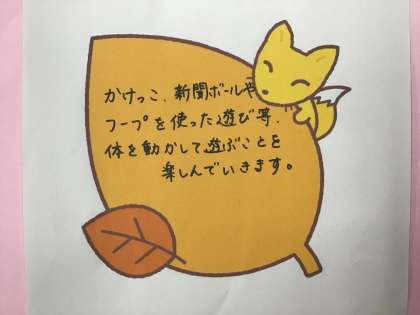 かけっこ、新聞ボールや
フープを使った遊び等、
体を動かして遊ぶことを
楽しんでいきます。